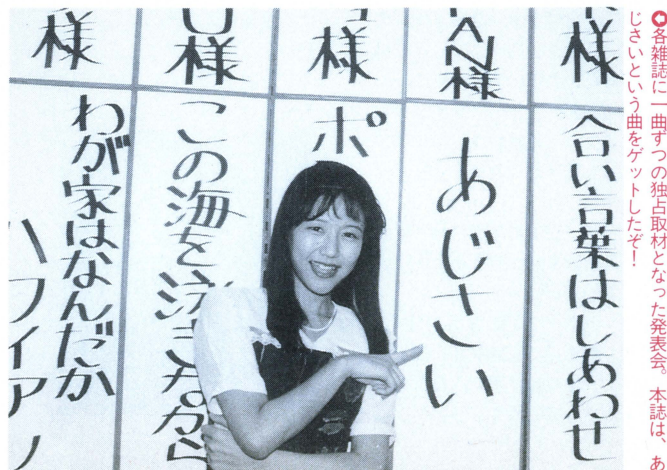 各雑誌に一曲ずつの独占取材となった発表会。本誌は、あ
じさいという曲をゲットしたぞ!
様
合い言葉はしあわせ
AN様
あじさい
様
ポ
様
この海を泣きながら
様
わが家はなんだか